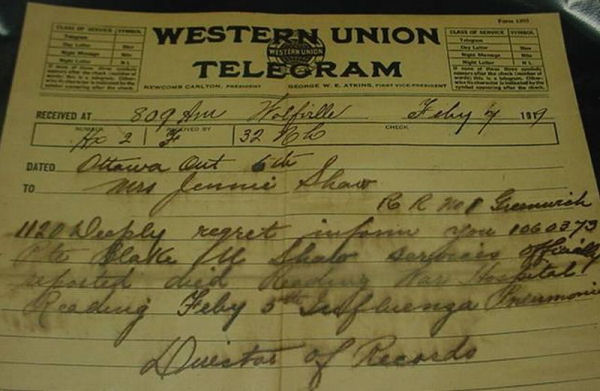 Form 1207
CLASS OF SERVICE SYMBOL
Telegram
Day Letter Blue
Night Message Nite
Night Letter N L
If none of these three symbols appears after the check (number of words) this is a telegram. Otherwise its character is indicated by the symbol appearing after the check.
WESTERN UNION
WESTERN UNION
TELEGRAM
NEWCOMB CARLTON, PRESIDENT GEORGE W. E. ATKINS, FIRST VICE-PRESIDENT
CLASS OF SERVICE SYMBOL
Telegram
Day Letter Blue
Night Message Nite
Night Letter N L
If none of these three symbols appears after the check (number of words) this is a telegram. Otherwise its character is indicated by the symbol appearing after the check.
RECEIVED AT 809 Am Wolfville Feby 7 1919
NUMBER RECEIVED BY CHECK
2 F 32
DATED Ottawa Ont 6th
TO Mrs Jennie Shaw
R R No 1 Greenwich
1120 Deeply regret inform you 1060373
Pte Blake M Shaw services officially
reported died Reading War Hospital
Reading Feby 5th Influenza Pneumonia
Director of Records